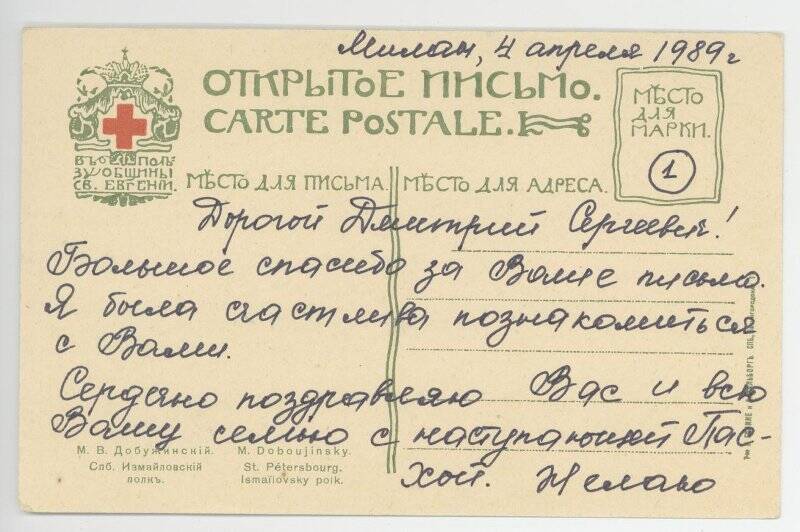 Милан, 4 апреля 1989 г
ОТКРЫТОЕ ПИСЬМО.
CARTE POSTALE.
МѢСТО
ДЛЯ
МАРКИ.
1
ВЪ ПОЛЬ
ЗУ ОБЩИНЫ
СВ. ЕВГЕНІИ.
МѢСТО ДЛЯ ПИСЬМА.
МѢСТО ДЛЯ АДРЕСА.
Дорогой Дмитрий Сергеевич!
Большое спасибо за Ваше письмо.
Я была счастлива познакомиться
с Вами.
Сердечно поздравляю Вас и всю
Вашу семью с наступающей Пас-
хой. Желаю
М. В. Добужинскій.
Спб. Измайловскій
полкъ.
M. Doboujinsky.
St. Pétersbourg.
Ismaïlovsky polk.